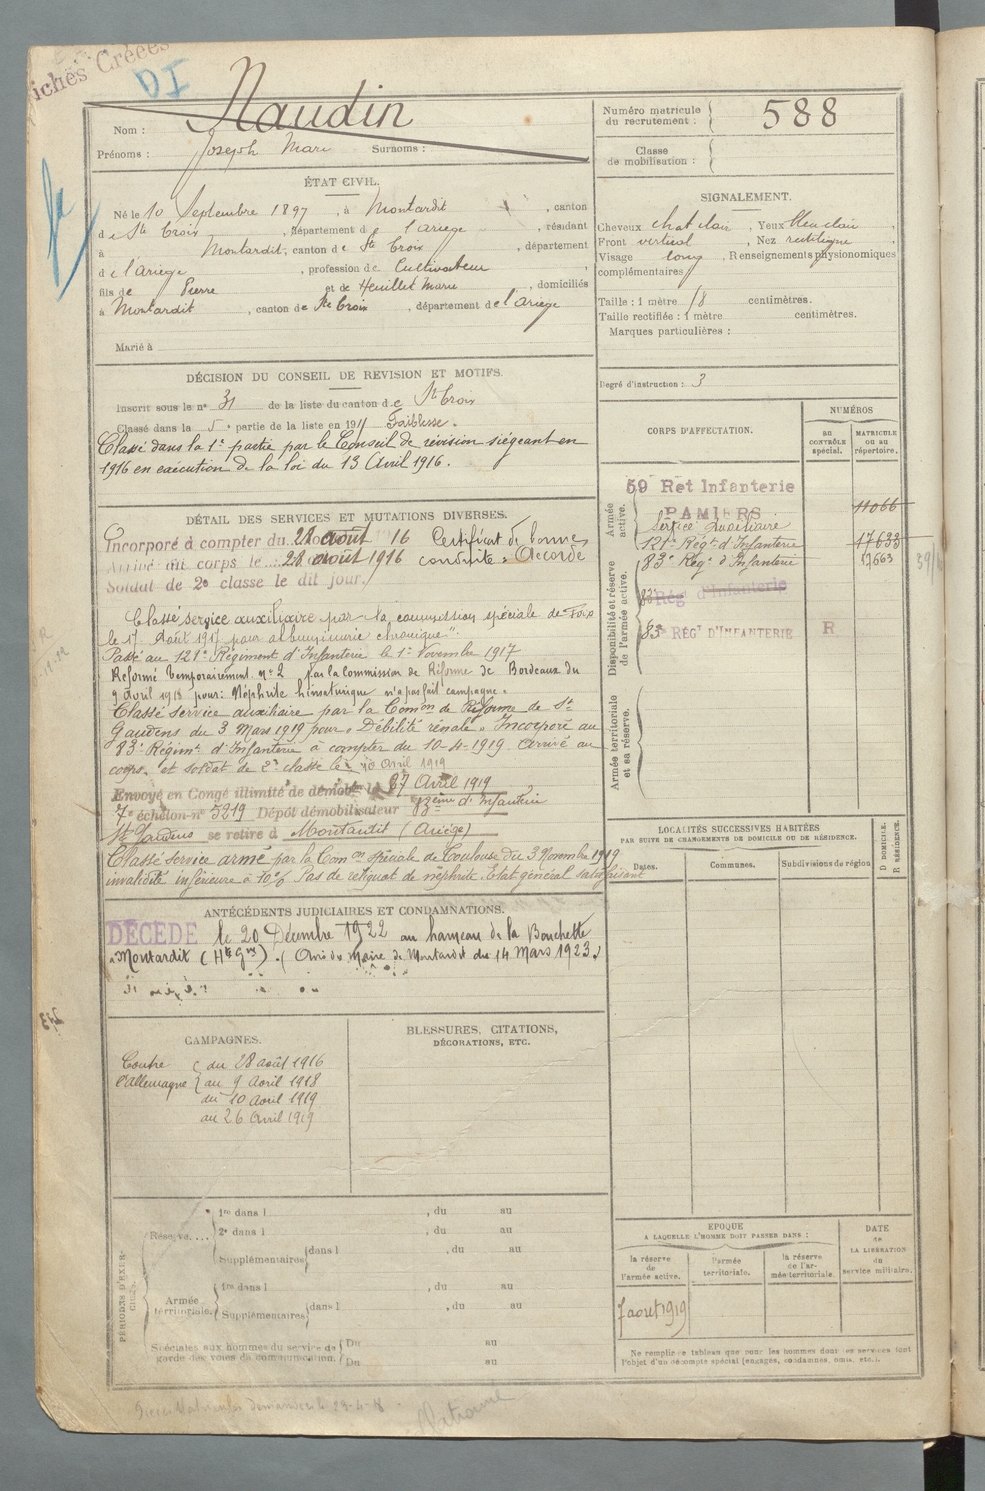 iches Créées
DI
Nom : Naudin
Prénoms : Joseph Marie Surnoms :
Numéro matricule du recrutement : 588
Classe de mobilisation :
ÉTAT CIVIL.
Né le 10 Septembre 1897, à Montardit, canton
de Ste Croix, département de l'Ariège, résidant
à Montardit, canton de Ste Croix, département
de l'Ariège, profession de Cultivateur
fils de Pierre et de Heuillet Marie, domiciliés
à Montardit, canton de Ste Croix, département de l'Ariège
Marié à
SIGNALEMENT.
Cheveux chat clair, Yeux bleu clair,
Front vertical, Nez rectiligne,
Visage long, Renseignements physionomiques
complémentaires
Taille : 1 mètre 18 centimètres.
Taille rectifiée : 1 mètre centimètres.
Marques particulières :
Degré d'instruction : 3
DÉCISION DU CONSEIL DE REVISION ET MOTIFS.
Inscrit sous le n° 31 de la liste du canton de Ste Croix
Classé dans la 5e partie de la liste en 1917 Faiblesse.
Classé dans la 1e partie par le Conseil de révision siégeant en
1916 en exécution de la loi du 13 Avril 1916.
DÉTAIL DES SERVICES ET MUTATIONS DIVERSES.
Incorporé à compter du 28 août 16 Certificat de bonnes
Arrivé au corps le 28 août 1916 conduite "Accordé
Soldat de 2e classe le dit jour.
Classé service auxiliaire par la commission spéciale de Foix
le 17 Août 1917 pour albuminurie chronique".
Passé au 121e Régiment d'Infanterie le 1er Novembre 1917
Réformé temporairement n° 2 par la Commission de Réforme de Bordeaux du
9 avril 1918 pour: Néphrite hématurique n'a pas fait campagne.
Classé service auxiliaire par la Comon de Réforme de St
Gaudens du 3 Mars 1919 pour "Débilité rénale". Incorporé au
83e Régimt d'Infanterie à compter du 10-4-1919 arrivé au
corps et soldat de 2e classe le 10 Avril 1919
Envoyé en Congé illimité de démobon le 27 Avril 1919
7e échelon n° 5219 Dépôt démobilisateur 83eme d'Infanterie
St Gaudens se retire à Montardit (Ariège)
Classé service armé par la Comon spéciale de Toulouse du 3 Novembre 1919
invalidité inférieure à 10% Pas de reliquat de néphrite. Etat général satisfaisant
CORPS D'AFFECTATION.
NUMÉROS
au contrôle spécial.
matricule ou au répertoire.
Armée active.
59 Ret Infanterie
PAMIERS
11066
Service Auxiliaire
121e Régt d'Infanterie 17633
83e Régt d'Infanterie 17663
Disponibilité et réserve de l'armée active.
83e Rég d'Infanterie
83e RÉGt D'INFANTERIE R
Armée territoriale et sa réserve.
LOCALITÉS SUCCESSIVES HABITÉES
PAR SUITE DE CHANGEMENTS DE DOMICILE OU DE RÉSIDENCE.
Dates.
Communes.
Subdivisions de région
D DOMICILE.
R RÉSIDENCE.
ANTÉCÉDENTS JUDICIAIRES ET CONDAMNATIONS.
DÉCÉDÉ le 20 Décembre 1922 au hameau de la Bouchette
à Montardit (Hte Gne). (Avis du Maire de Montardit du 14 Mars 1923)
CAMPAGNES.
Contre du 28 août 1916
l'Allemagne au 9 Avril 1918
du 10 Avril 1919
au 26 Avril 1919
BLESSURES, CITATIONS,
DÉCORATIONS, ETC.
PÉRIODES D'EXERCICES.
Réserve....
1re dans l , du au
2e dans l , du au
Supplémentaires dans l , du au
Armée territoriale.
1re dans l , du au
Supplémentaires dans l , du au
Spéciales aux hommes du service de
garde des voies de communication.
Du au
Du au
EPOQUE
A LAQUELLE L'HOMME DOIT PASSER DANS :
la réserve de l'armée active.
l'armée territoriale.
la réserve de l'armée territoriale.
DATE de LA LIBÉRATION du service militaire.
1 aout 1919
Ne remplir ce tableau que pour les hommes dont les services font
l'objet d'un décompte spécial (engagés, condamnés, omis, etc.).